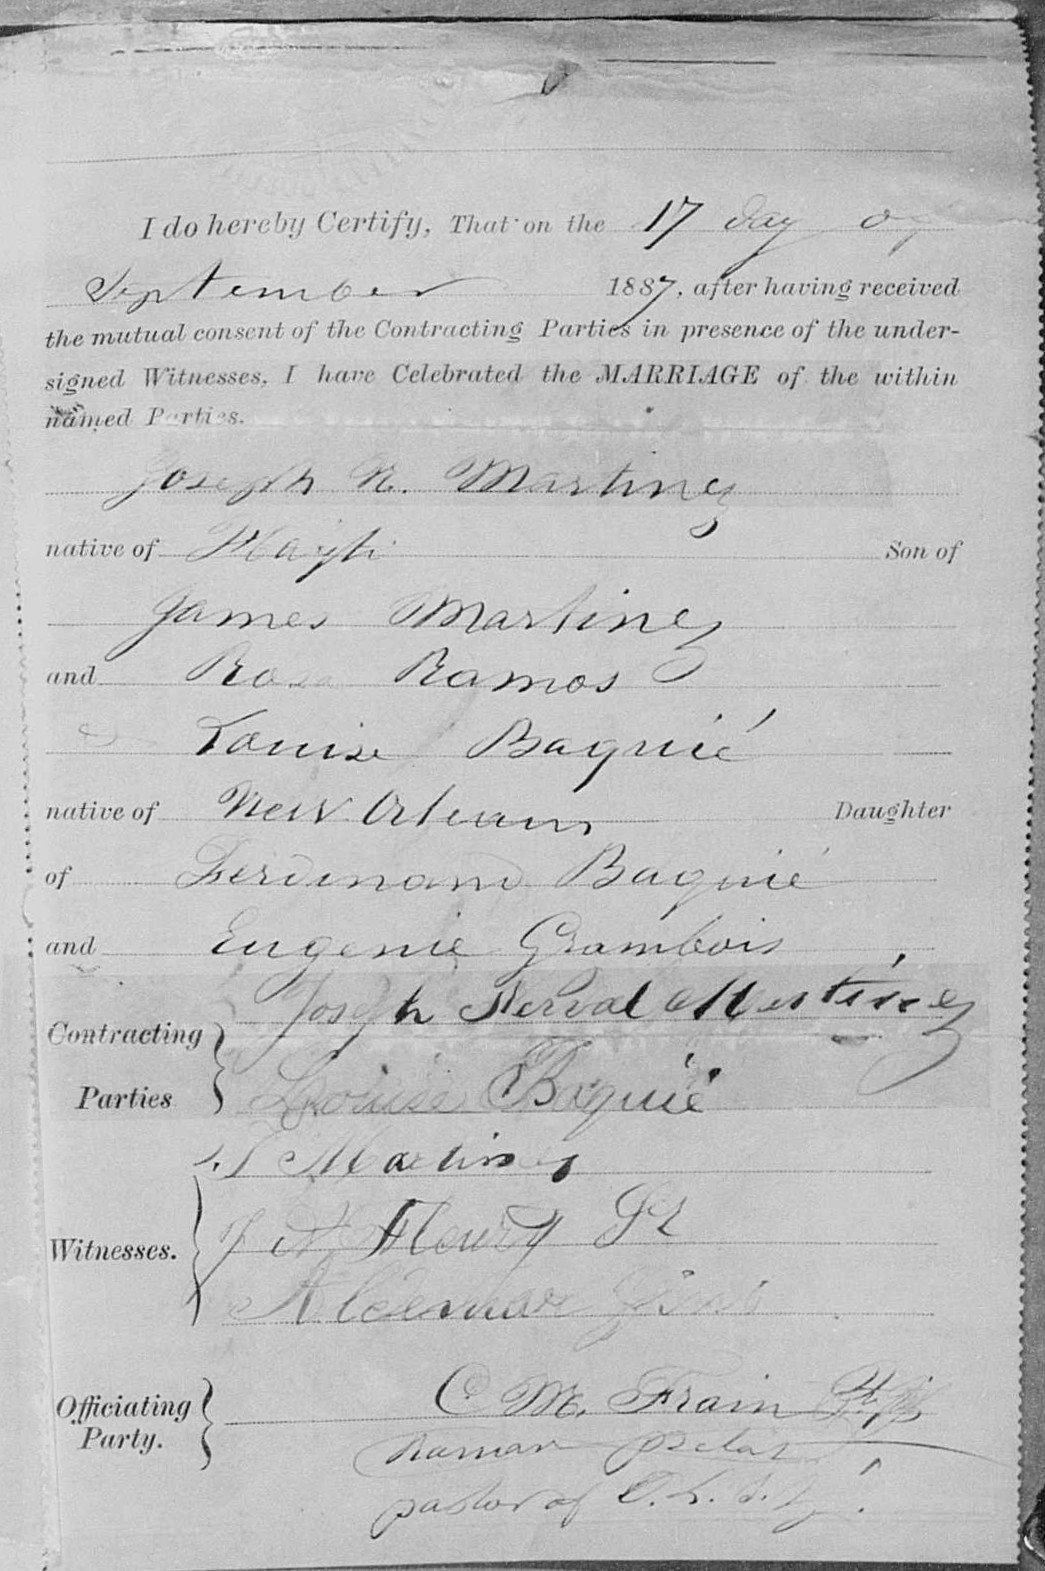 I do hereby Certify, That on the 17 day of
September 1887, after having received
the mutual consent of the Contracting Parties in presence of the under-
signed Witnesses, I have Celebrated the MARRIAGE of the within
named Parties.
Joseph N. Martinez
native of Hayti Son of
James Martinez
and Rosa Ramos
Louise Baquié
native of New Orleans Daughter
of Ferdinand Baquié
and Eugenie Grambois
Joseph Nerval Martinez
Contracting
Parties Louise Baquié
Martinez
Witnesses. J N Fleury Jr
Officiating C M. Frain
Party. Roman
pastor of